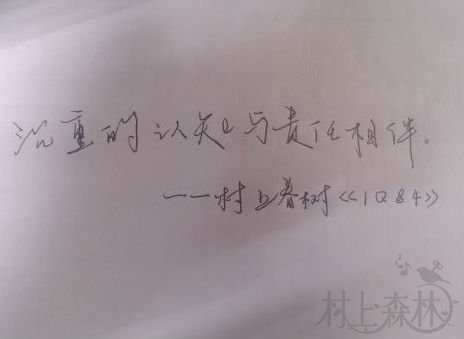 沉重的认知与责任相伴。
——村上春树《1Q84》
村上森林